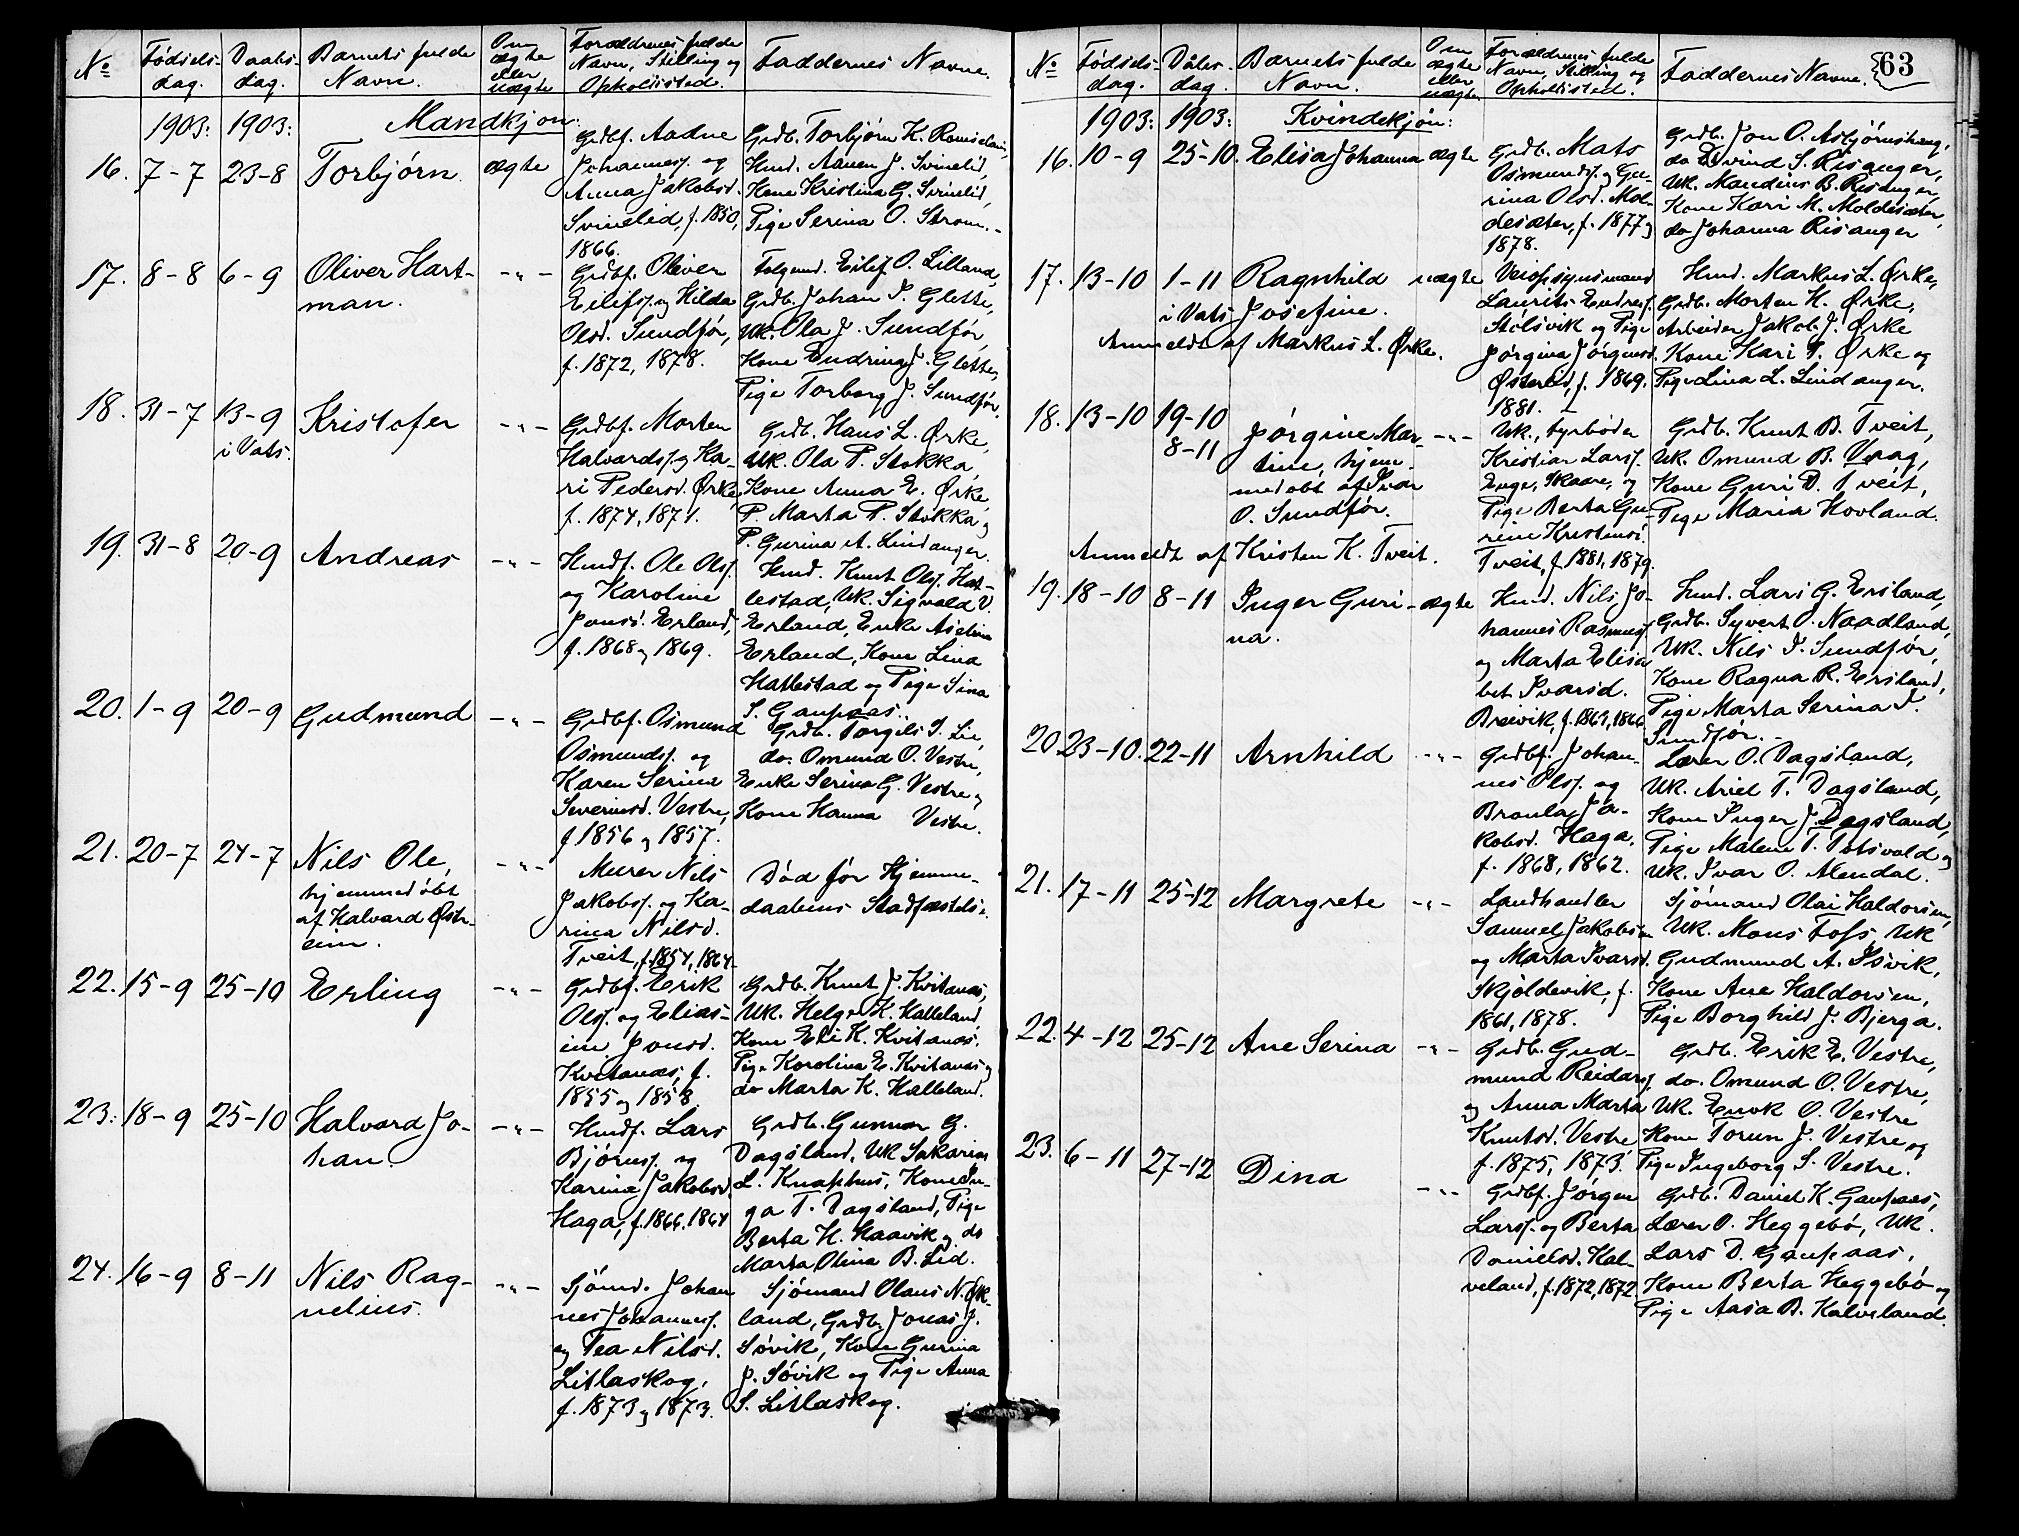 No
Fødsels-
dag.
Daabs-
dag.
Barnets fulde
Navn.
Om
ægte
eller
uægte
Forældrenes fulde
Navn, Stilling og
Opholdssted.
Faddernes Navne.
1903: 1903: Mandkjøn:
16. 7-7 23-8 Torbjørn ægte
Grdbf. Aadne
Johanness. og
Anna Jakobsd.
Svinelid, f. 1850,
1866.
Grdb. Torbjørn K.
Hmd. Aanen J. Svinelid,
Kone Kristina G. Svinelid,
Pige Serina O. Strøm.
17. 8-8 6-9 Oliver Hart-
man.
-"-
Grdbf. Oliver
Eilifs. og Hilda
Olsd. Sundfør,
f. 1872, 1878.
Folgemd. Eilif O. Lilland,
Grdb. Johan P. Glette,
Uk. Ola J. Sundfør,
Kone Endrina J. Glette,
Pige Torborg J. Sundfør.
18. 31-7 13-9 Kristofer -"-
i Vats.
Grdbf. Morten
Halvards. og Ka-
ri Pedersd. Ørke,
f. 1874, 1871.
Grdb. Hans L. Ørke,
Uk. Ola P. Stokka,
Kone Anna E. Ørke,
P. Marta P. Stokka og
P. Gurina A. Lindanger.
19. 31-8 20-9 Andreas -"-
Hmdf. Ole Ols.
og Karoline
Jonsd. Erland,
f. 1868 og 1869.
Hmd. Knut Ols. Hat-
lestad, Uk. Sigvald V.
Erland, Enke Aseline
Erland, Kone Lina
Hatlestad og Pige Sina
S. Gaupaas.
20. 1-9 20-9 Gudmund -"-
Grdbf. Osmund
Osmunds. og
Karen Serina
Severinsd. Vestre,
f. 1856 og 1857.
Grdb. Torgils S. Lie,
do. Omund O. Vestre,
Enke Serina G. Vestre og
Kone Hanna Vestre.
21. 20-7 24-7 Nils Ole, -"-
hjemmedøbt
af Halvard Østre-
em.
Murer Nils
Jakobs. og Ka-
rina Nilsd.
Tveit, f. 1854, 1864.
Død før Hjemme-
daabens Stadfæstelse.
22. 15-9 25-10 Erling -"-
Grdbf. Erik
Ols. og Elias-
ine Jonsd.
Kvitanæs, f.
1855 og 1858.
Grdb. Knut J. Kvitanæs,
Uk. Helge K. Halleland
Kone Eli K. Kvitanæs,
Pige Karolina E. Kvitanæs og
do Marta K. Halleland.
23. 18-9 25-10 Halvard Jo- -"-
han.
Hmdf. Lars
Bjørns. og
Karina Jakobsd.
Haga, f. 1866, 1864
Grdb. Gunnar G.
Dagsland, Uk. Sakarias
L. Knaphus, Kone In-
ga T. Dagsland, Pige
Berta H. Haavik og do
Marta Olina B. Lid.
24. 16-9 8-11 Nils Rag- -"-
nelius.
Sjømd. Johan-
nes Johanness.
og Tea Nilsd.
Litlaskog,
f. 1873 og 1873.
Sjømand Olaus N. Øk-
land, Grdb. Jonas J.
Søvik, Kone Gurina
J. Søvik og Pige Anna
S. Litlaskog.
63
No
Fødsels-
dag.
Dåbs-
dag.
Barnets fulde
Navn.
Om
ægte
eller
uægte
Forældrenes fulde
Navn, Stilling og
Opholdssted.
Faddernes Navne.
1903: 1903: Kvindekjøn:
16. 10-9 25-10. Elisa Johanna ægte
Grdb. Mats
Osmunds. og Gu-
rina Olsd. Mol-
desæter, f. 1877 og
1878.
Grdb. Jon O. Asbjørnshaug,
do Eivind S. Risanger,
Uk. Mandius B. Risanger,
Kone Kari M. Moldesæter,
do Johanna Risanger
17. 13-10 1-11 Ragnhild uægte
i Vats Josefine.
Anmeldt af Markus L. Ørke.
Veiopsynsmand
Laurits Endres.
Stølsvik og Pige
Jørgina Jørgensd.
f. 1869.
1881.
Hmd. Markus L. Ørke,
Grdb. Morten H. Ørke,
Arbeider Jakob J. Ørke
Kone Kari P. Ørke og
Pige Lina L. Lindanger.
18. 13-10 19-10
8-11
Jørgine Mar- -"-
tine, hjem-
medøbt af Ivar
O. Sundfør.
Anmeldt af Kristen K. Tveit.
Uk., fyrbøder
Kristian Lars.
Enge, Skaare, og
Pige Berta Gu-
rine Kristensd.
Tveit, f. 1881, 1879.
Grdb. Knut B. Tveit,
Uk. Omund B. Vaag,
Kone Guri D. Tveit,
Pige Maria Hovland.
19. 18-10 8-11 Inger Guri- ægte
na.
Hmd. Nils Jo-
hannes Rasmuss.
og Marta Elisa-
bet Ivarsd.
Breivik, f. 1869, 1866
Hmd. Lars G. Ersland,
Grdb. Syvert O. Naadland,
Uk. Nils I. Sundfør,
Kone Ragna R. Ersland,
Pige Marta Serina I.
Sundfør.
20. 23-10. 22-11 Arnhild -"-
Grdbf. Johan-
nes Ols. og
Bronla Ja-
kobsd. Haga,
f. 1868, 1862.
Lærer O. Dagsland,
Uk. Ariel T. Dagsland,
Kone Inger J. Dagsland,
Pige Malene T. Totsvold og
Uk. Ivar O. Alendal.
21. 17-11 25-12 Margrete -"-
Landhandler
Samuel Jakobsen
og Marta Ivarsd.
Skjoldevik, f.
1861, 1878.
Sjømand Olai Haldorsen,
Uk. Mons Foss, Uk
Gudmund A. Isvik,
Kone Ane Haldorsen,
Pige Borghild J. Bjerga.
22. 4-12 25-12 Ane Serina -"-
Grdb. Gud-
mund Reidars.
og Anna Marta
Knutsd. Vestre
f. 1875, 1873.
Grdb. Erik E. Vestre,
do. Omund O. Vestre,
Uk. Enok O. Vestre
Kone Torun J. Vestre og
Pige Ingeborg S. Vestre.
23. 6-11 27-12 Dina -"-
Grdbf. Jørgen
Lars. og Berta
Danielsd. Kal-
veland, f. 1872, 1872
Grdb. Daniel K. Gaupaas,
Lærer O. Heggebø, Uk.
Lars D. Gaupaas,
Kone Berta Heggebø og
Pige Aasa B. Kalveland.